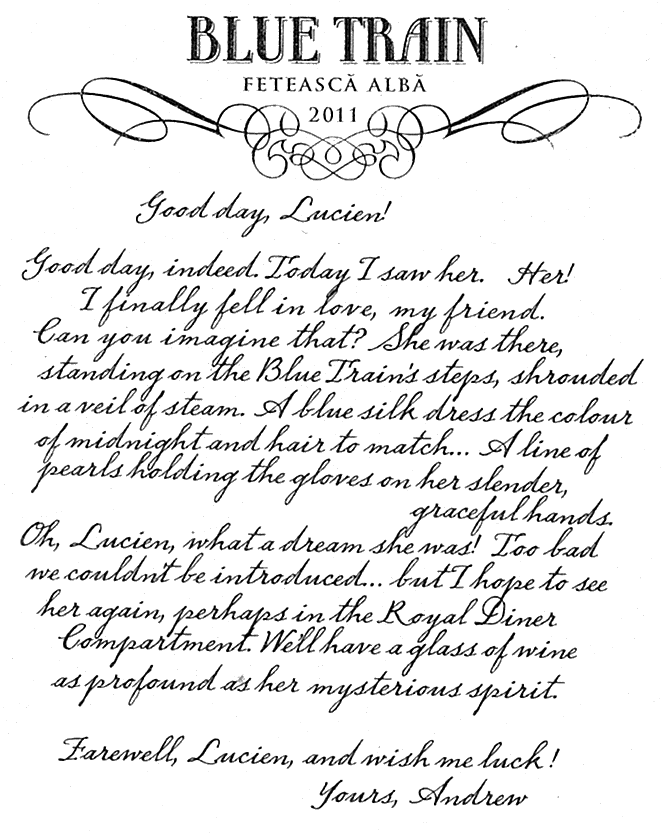 BLUE TRAIN
FETEASCĂ ALBĂ
2011
Good day, Lucien!
Good day, indeed. Today I saw her. Her!
I finally fell in love, my friend.
Can you imagine that? She was there,
standing on the Blue Train's steps, shrouded
in a veil of steam. A blue silk dress the colour
of midnight and hair to match... A line of
pearls holding the gloves on her slender,
graceful hands.
Oh, Lucien, what a dream she was! Too bad
we couldn't be introduced... but I hope to see
her again, perhaps in the Royal Diner
Compartment. We'll have a glass of wine
as profound as her mysterious spirit.
Farewell, Lucien, and wish me luck!
Yours, Andrew